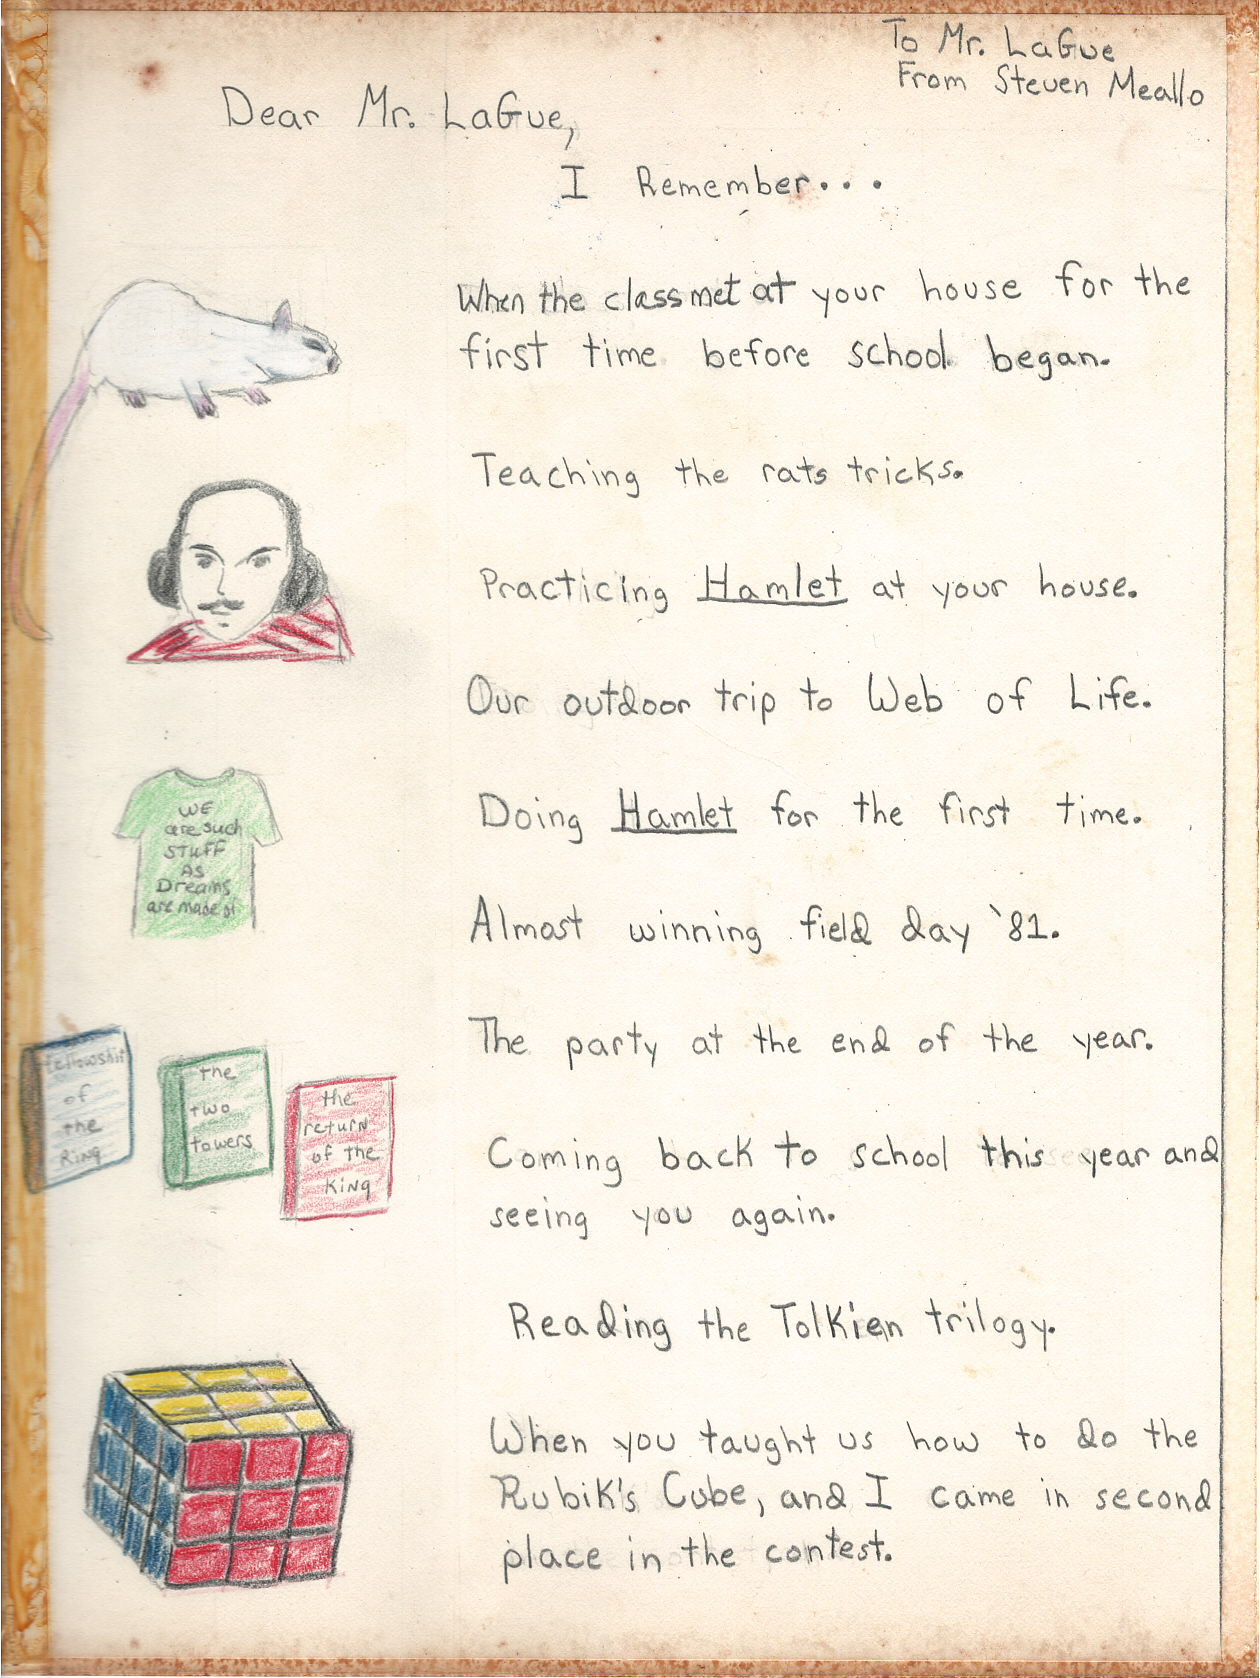 To Mr. LaGue
From Steven Meallo
Dear Mr. LaGue,
I Remember...
When the class met at your house for the
first time before school began.
Teaching the rats tricks.
Practicing Hamlet at your house.
Our outdoor trip to Web of Life.
Doing Hamlet for the first time.
Almost winning field day '81.
The party at the end of the year.
Coming back to school this year and
seeing you again.
Reading the Tolkien trilogy.
When you taught us how to do the
Rubik's Cube, and I came in second
place in the contest.
WE
are such
STUFF
AS
Dreams
are made of
fellowship
of
the
Ring
the
two
towers
the
return
of the
King